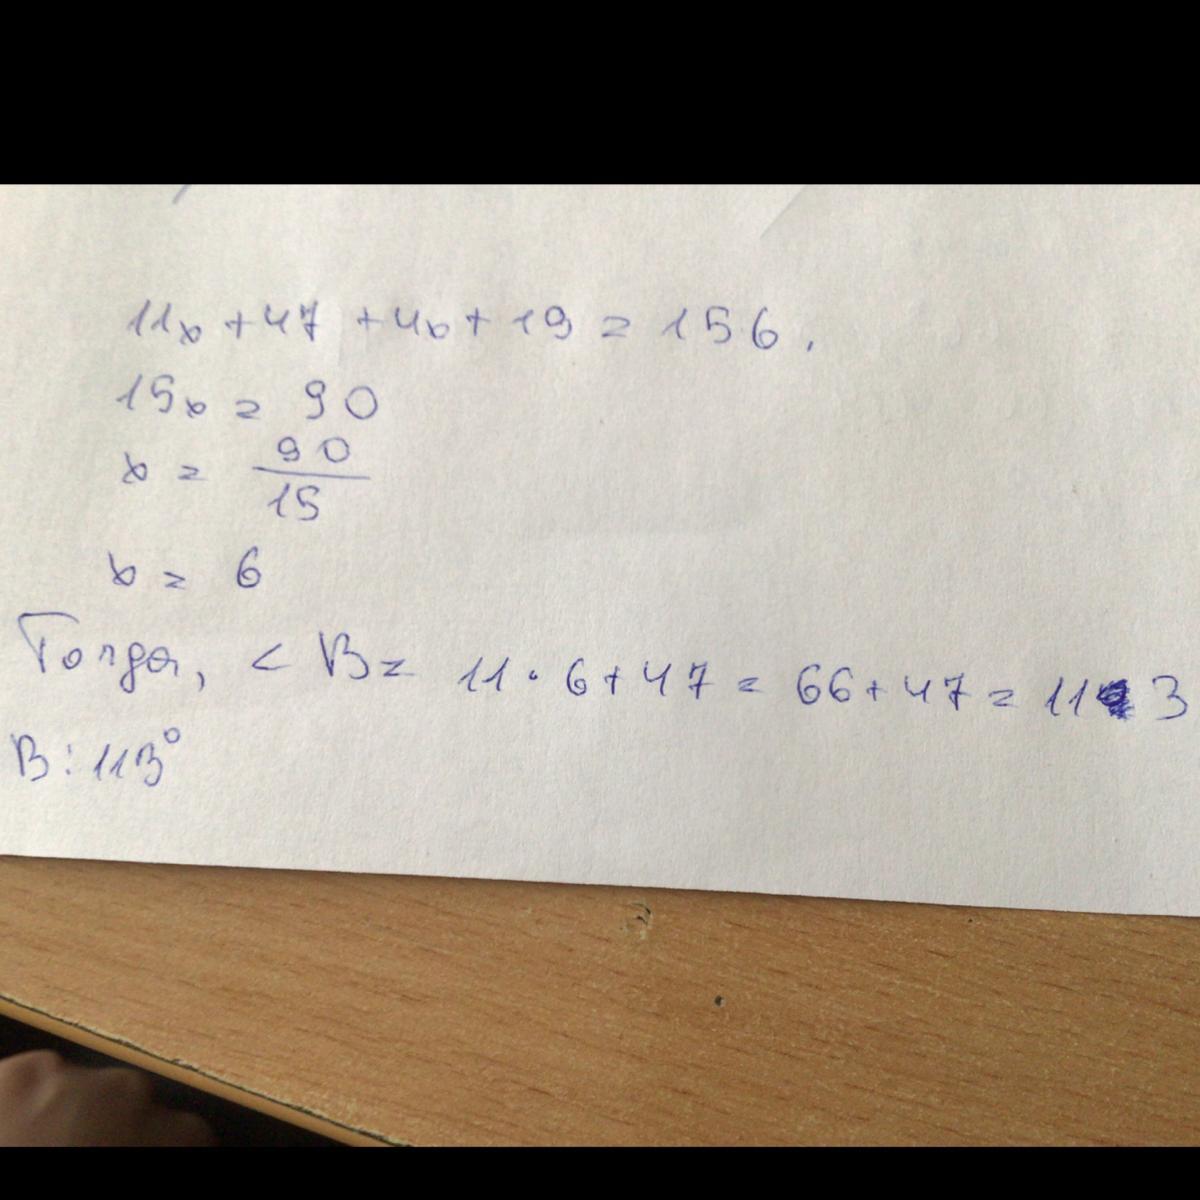 11x + 47 + 4x + 19 = 156.
15x = 90
x = 90/15
x = 6
Тогда, < B = 11 · 6 + 47 = 66 + 47 = 113
В: 113°